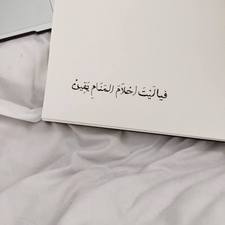 فياليْتَ أحْلَامَ المَنَامِ يَقِينُ